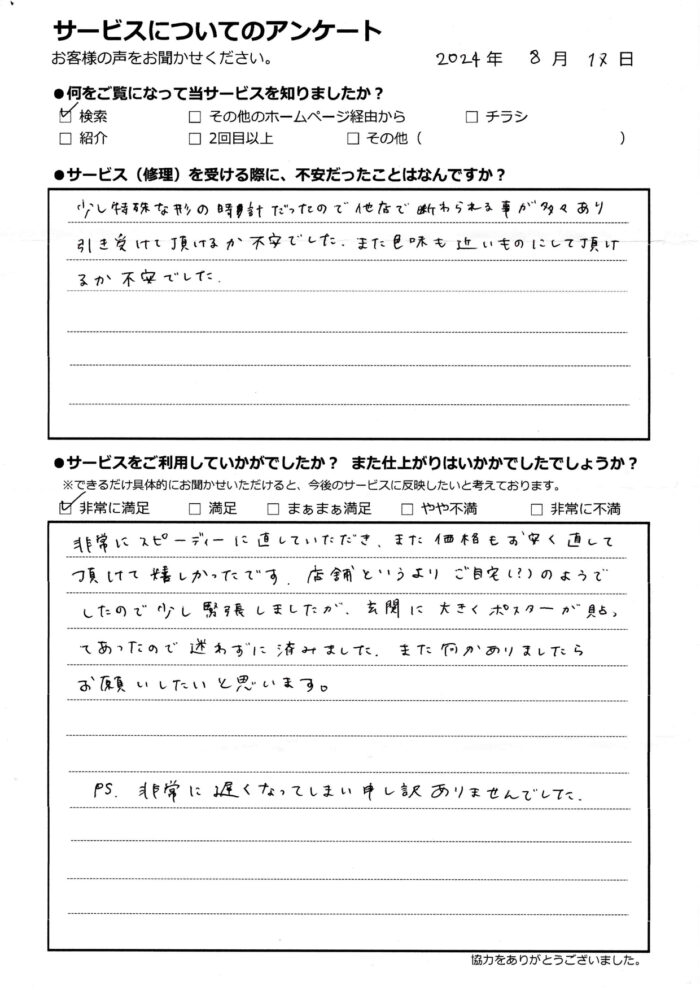 サービスについてのアンケート
お客様の声をお聞かせください。 2024年 8月 17日
●何をご覧になって当サービスを知りましたか？
☑ 検索 □ その他のホームページ経由から □ チラシ
□ 紹介 □ 2回目以上 □ その他（ ）
●サービス（修理）を受ける際に、不安だったことはなんですか？
少し特殊な形の時計だったので他店で断わられる事が多々あり
引き受けて頂けるか不安でした. また色味も近いものにして頂け
るか不安でした.
●サービスをご利用していかがでしたか？ また仕上がりはいかかでしたでしょうか？
※できるだけ具体的にお聞かせいただけると、今後のサービスに反映したいと考えております。
☑ 非常に満足 □ 満足 □ まぁまぁ満足 □ やや不満 □ 非常に不満
非常にスピーディーに直していただき、また価格もお安く直して
頂けて嬉しかったです. 店舗というよりご自宅(?)のようで
したので少し緊張しましたが、玄関に大きくポスターが貼っ
てあったので迷わずに済みました. また何かありましたら
お願いしたいと思います。
PS. 非常に遅くなってしまい申し訳ありませんでした.
協力をありがとうございました。